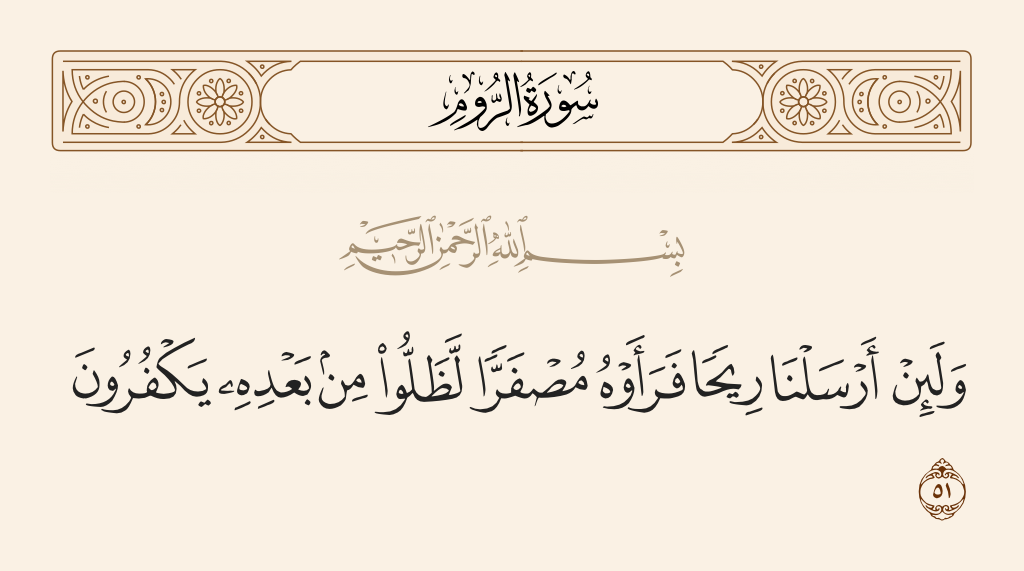 سُورَةُ الرُّومِ
بِسْمِ ٱللَّهِ ٱلرَّحْمَٰنِ ٱلرَّحِيمِ
وَلَئِنْ أَرْسَلْنَا رِيحًا فَرَأَوْهُ مُصْفَرًّا لَّظَلُّوا۟ مِنۢ بَعْدِهِۦ يَكْفُرُونَ
٥١